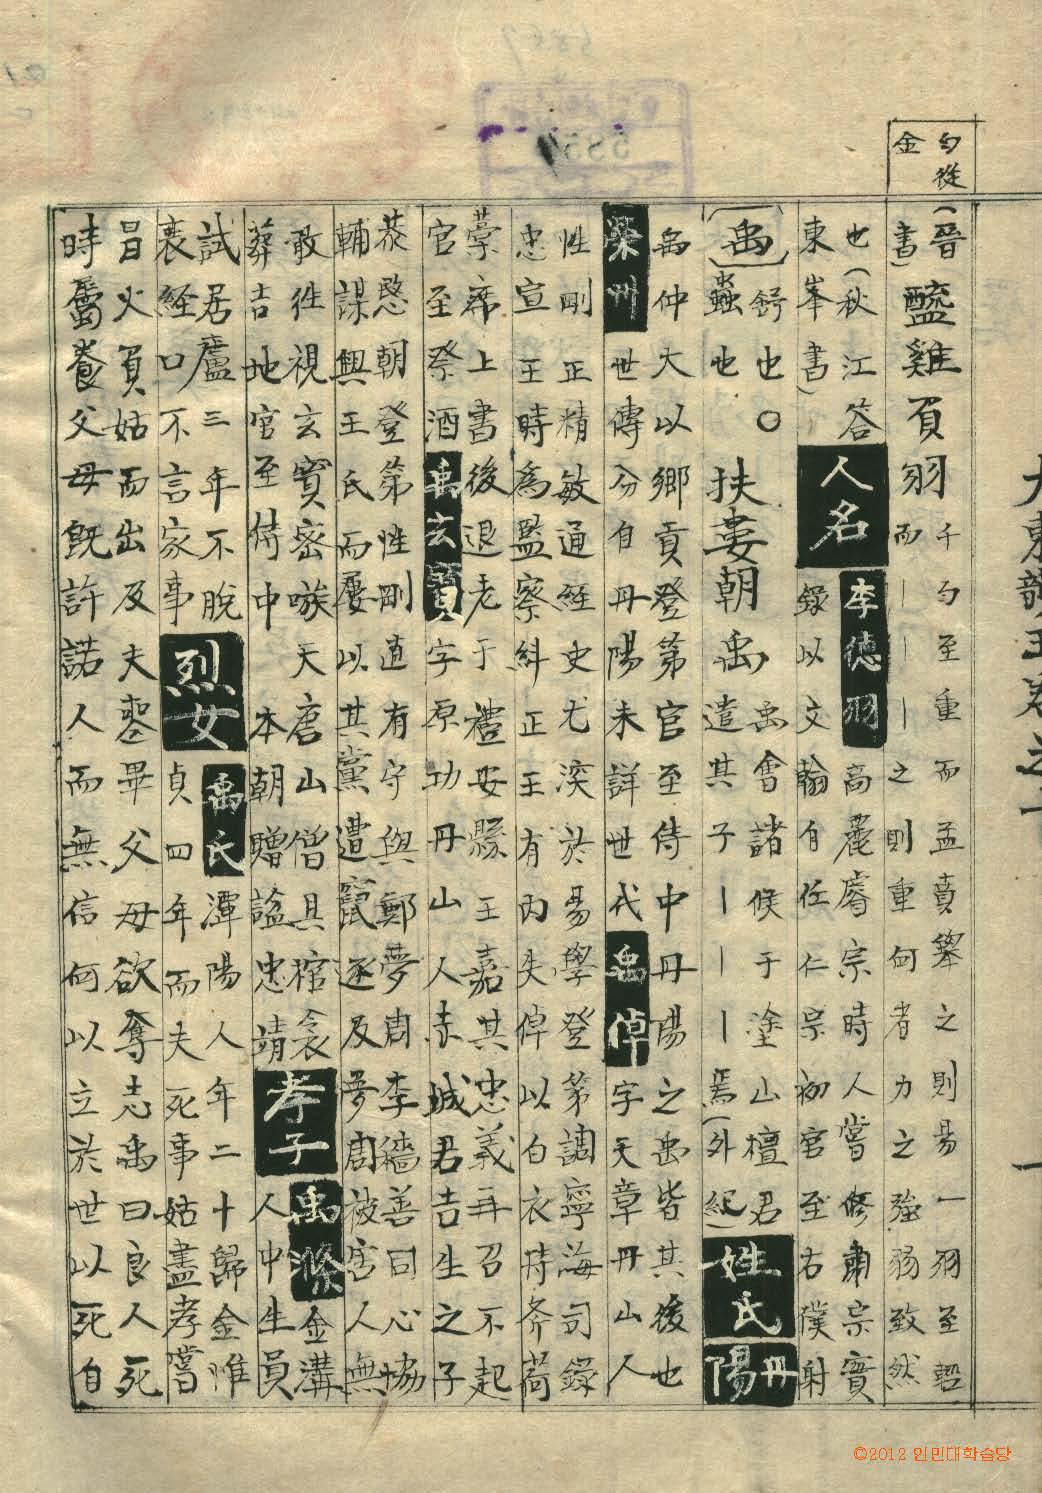 勻從
金
(晉書)醯雞 負羽 千勻至重而孟賁擧之則易一羽至輕
而｜｜之則重何者力之強弱致然
也(秋江答
東峯書) 人名 李德羽 高麗睿宗時人嘗修肅宗實
錄以文翰自任仁宗初官至右僕射
(禹) 舒也
蟲也 〇 扶婁朝禹 禹會諸侯于塗山檀君
遣其子｜｜｜焉(外紀) 姓氏 丹陽
禹仲大以鄉貢登第官至侍中丹陽之禹皆其後也
榮州 世傳分自丹陽未詳世代 禹倬 字天章丹山人
性剛正精敏通經史尤深於易學登第調寧海司錄
忠宣王時爲監察糾正王有內失倬以白衣持斧荷
藁席上書後退老于禮安縣王嘉其忠義再召不起
官至祭酒 禹玄寶 字原功丹山人赤城君吉生之子
恭愍朝登第性剛直有守與鄭夢周李穡善同心協
輔謀興王氏而屢以其黨遭竄逐及夢周被害人無
敢徃視玄寶密嗾天唐山僧具棺衾
葬吉地官至侍中 本朝贈諡忠靖 孝子 禹滌 金溝
人中生員
試居廬三年不脫
衰絰口不言家事 烈女 禹氏 潭陽人年二十歸金惟
貞四年而夫死事姑盡孝嘗
冒火負姑而出及夫喪畢父母欲奪志禹曰良人死
時屬養父母旣許諾人而無信何以立於世以死自
©2012 인민대학습당